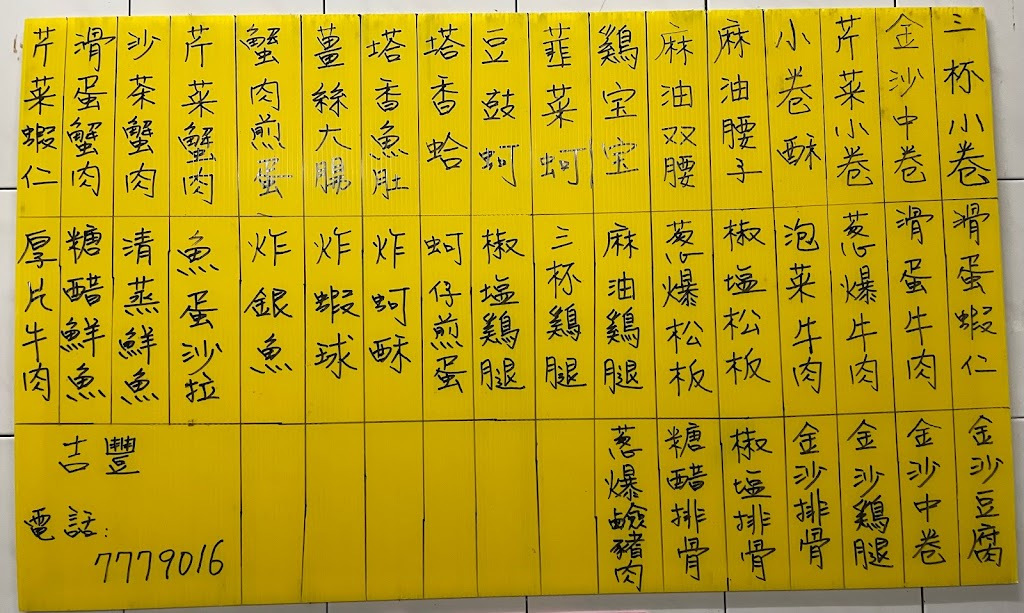 三杯小卷
金沙中卷
芹菜小卷
小卷酥
麻油腰子
麻油双腰
鷄宝宝
韮菜蚵
豆鼓蚵
塔香蛤
塔香魚肚
薑絲大腸
蟹肉煎蛋
芹菜蟹肉
沙茶蟹肉
滑蛋蟹肉
芹菜蝦仁
滑蛋蝦仁
滑蛋牛肉
葱爆牛肉
泡菜牛肉
椒塩松板
葱爆松板
麻油鷄腿
三杯鷄腿
椒塩鷄腿
蚵仔煎蛋
炸蚵酥
炸蝦球
炸銀魚
魚蛋沙拉
清蒸鮮魚
糖醋鮮魚
厚片牛肉
金沙豆腐
金沙中卷
金沙鷄腿
金沙排骨
椒塩排骨
糖醋排骨
葱爆鹼豬肉
吉豐
電話:
7779016